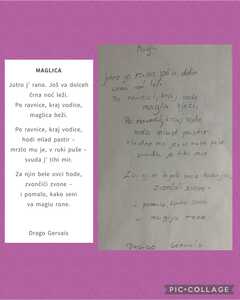 MAGLICA
Jutro j' rana. Još va dvoceh
črna noć leži.
Po ravnice, kraj vodice,
maglica beži.
Po ravnice, kraj vodice,
hodi mlad pastir –
mrzlo mu je, v ruki puše –
svuda j' tihi mir.
Za njin bele ovci hode,
zvončići zvone –
i pomalo, kako seni
va magiu rone.
Drago Gervais
Jutro je rana
noć leži
Po ravnice, kraj vodice
maglica beži,
Po ravnice, kraj vode
hodi mlad pastir
mu je v ruki puše
svuda j' tihi mir.
bele ovci hode,
zvončići zvone –
i pomalo, kako seni
va magiu rone.
DRAGO Gervais
PIC•COLLAGE